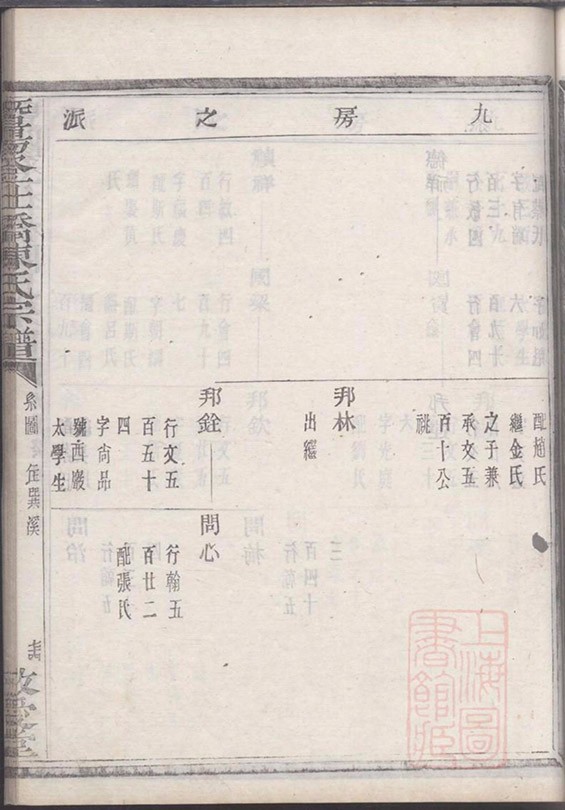 九房之派
配趙氏
繼金氏
之子兼
承文五
百十公
祧
邦林
出繼
邦銓
行文五
百五十
四
字尚品
號西巖
太學生
問心
行翰五
百廿二
配張氏
陳氏宗譜
系圖
巽溪
上海圖
書館藏